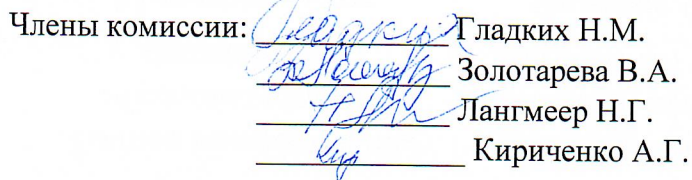 Члены комиссии: Гладких Н.М.
Золотарева В.А.
Лангмеер Н.Г.
Кириченко А.Г.